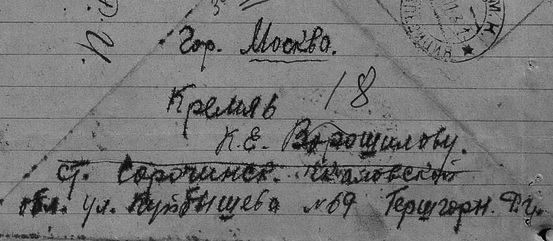 Гор. Москва.
18
Кремль
К.Е. Ворошилову.
ст. Сорочинск Чкаловской
обл. ул. Куйбышева №69 Гершгорн. Д.И.